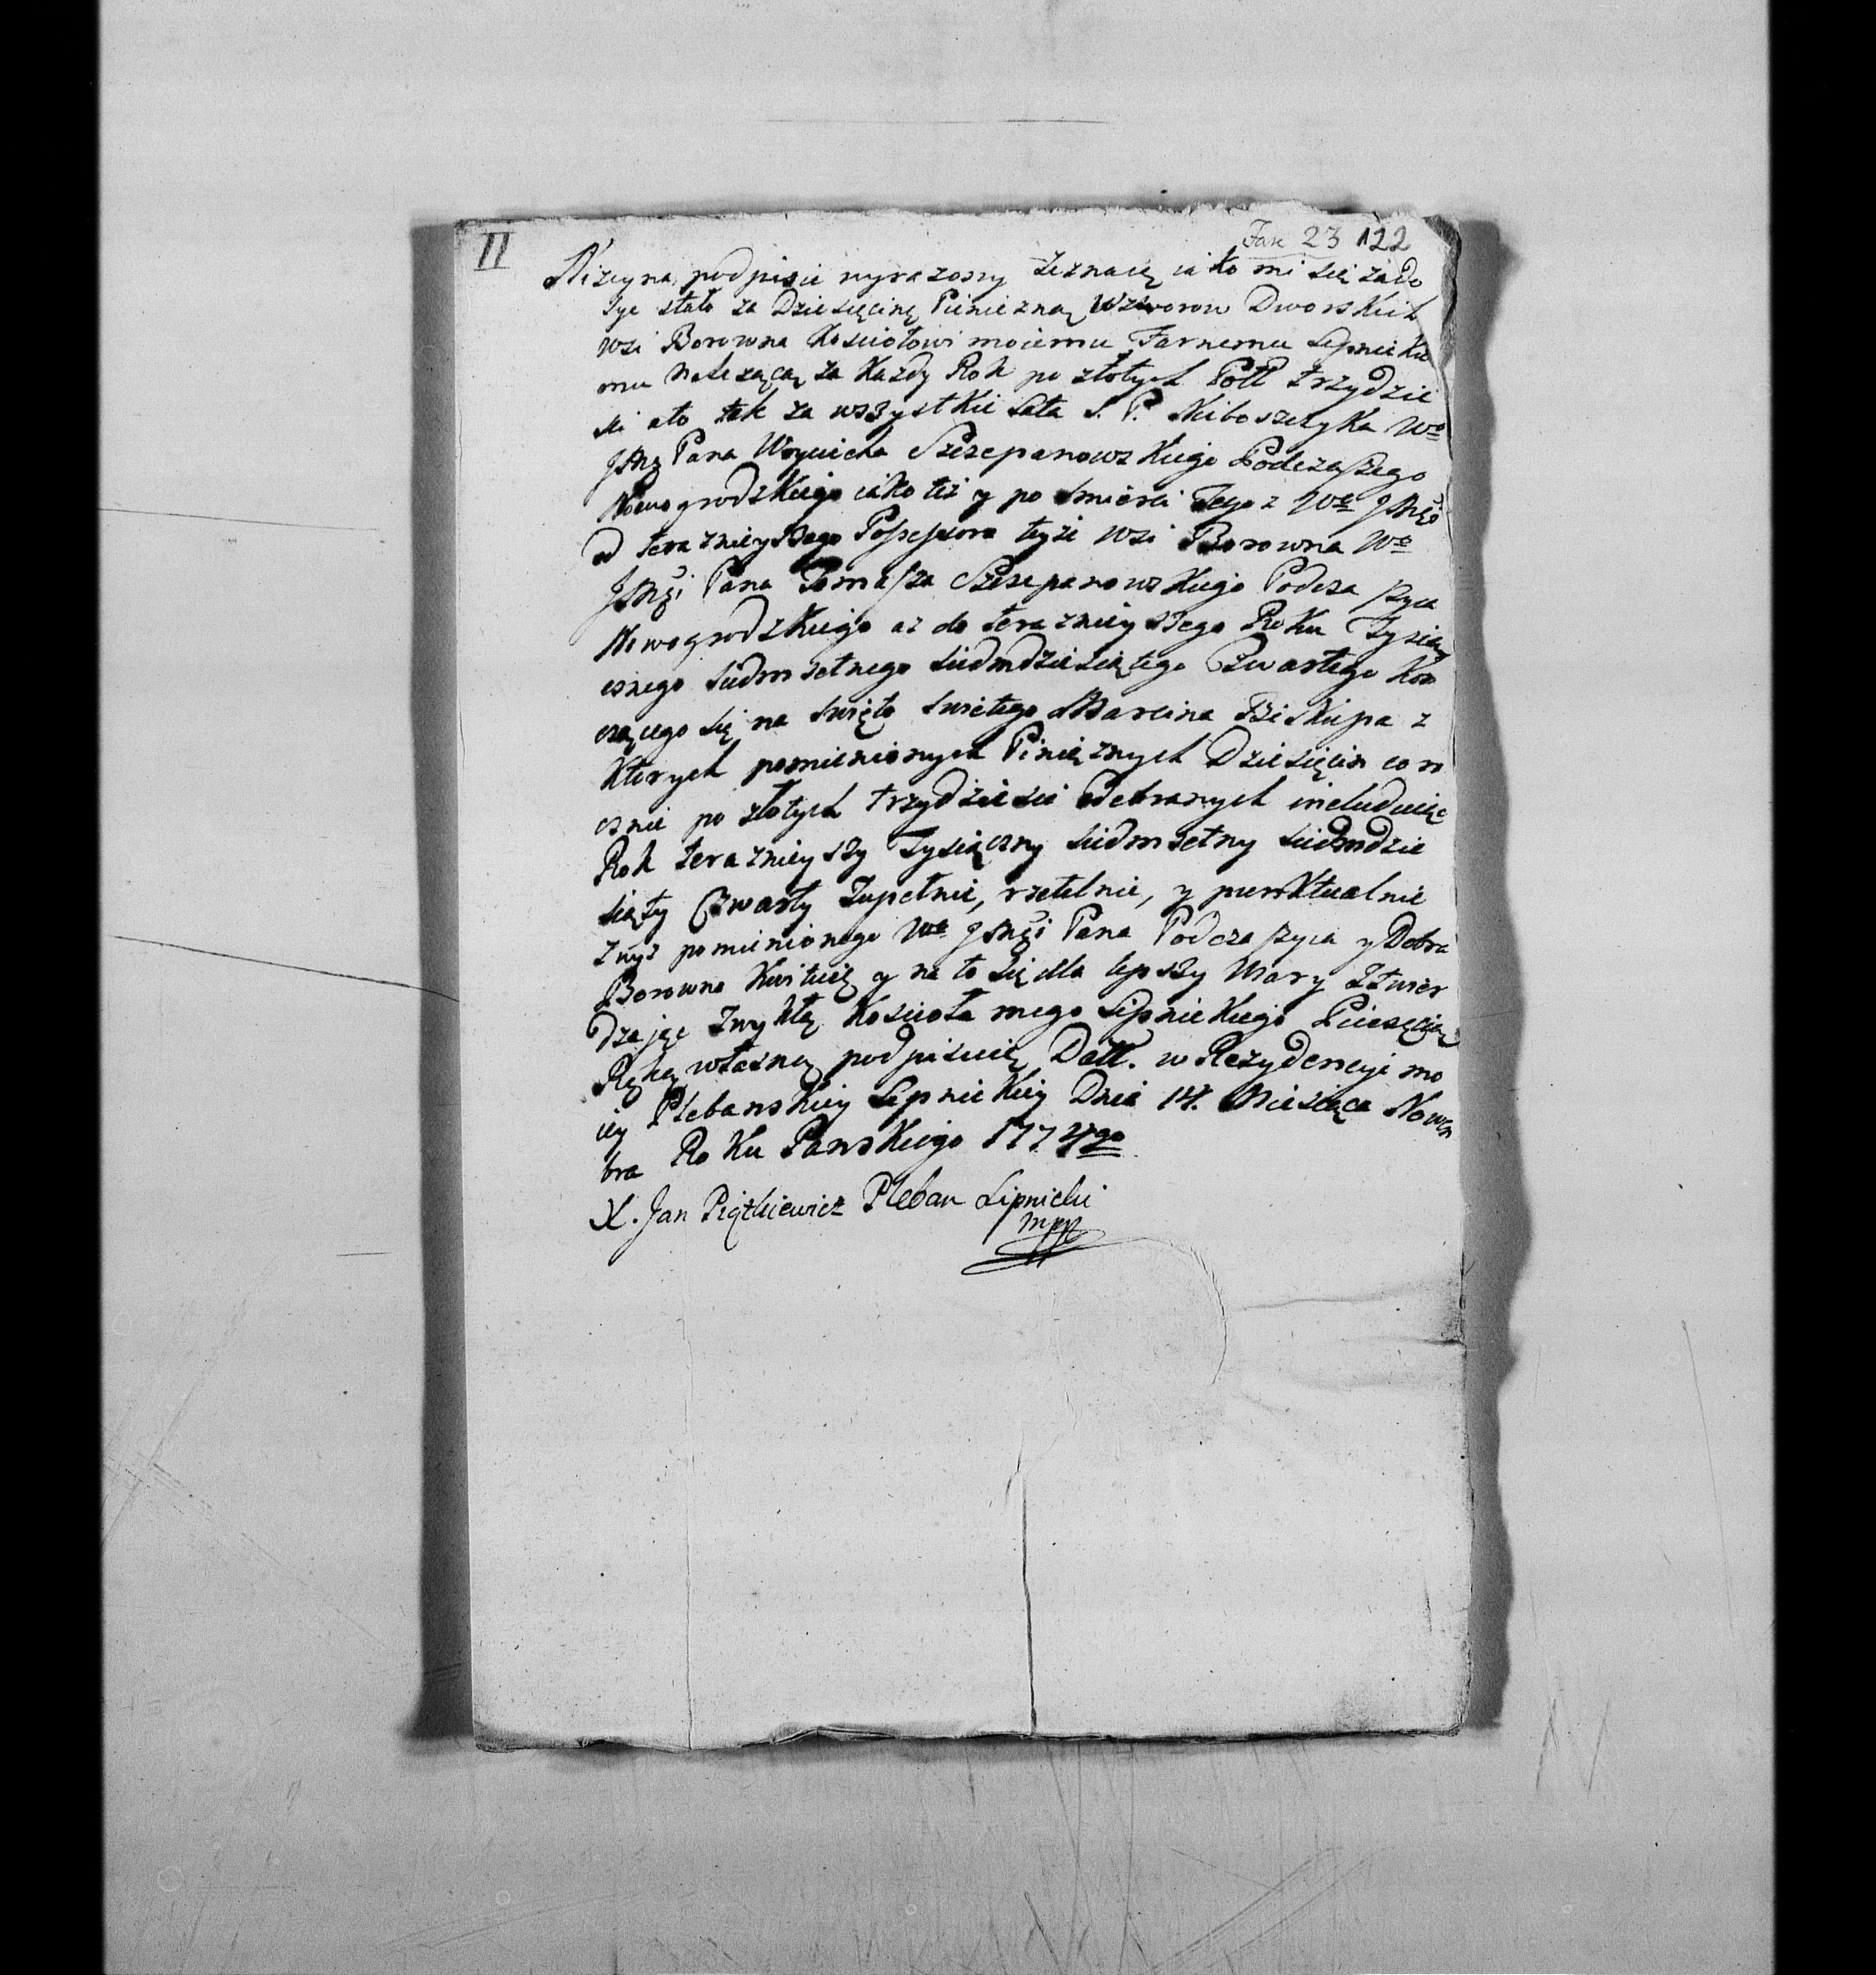 II
Fasc 23 122
Nizey na podpisie wyrazony zeznaię iako mi się zado
syc stało za Dziesięcinę Pieniezną Dworskich
wsi Borowna Kosciołowi moiemu Farnemu Lipnickie
mu nalezącą za Kazdy Rok po złotych Poll trzydzie
sci a to tak za wszystkie Lata S. P. Nieboszczyka Wo
JMci Pana Woyciecha Szczepanowskiego Podczaszego
Nowogrodzkiego iako też y po smierci Jego z Wo JMci
od teraznieyszego Possessora teyze wsi Borowna Wo
JMci Pana Tomasza Szczepanowskiego Podczaszyca
Nowogrodzkiego az do teraznieyszego Roku Tysiąc
cznego siedmsetnego siedmdziesiątego Czwartego Kon
czącego się na swięto swietego Marcina Biskupa z
Ktorych pomienionych Pieniężnych Dziesięcin co ro
cznie po złotych trzydziesci odebranych includuiąc
Rok teraznieyszy Tysiączny siedmsetny siedmdzie
siąty Czwarty Zupełnie, rzetelnie, y punktualnie
zwyz pomienionego Wo JMci Pana Podczaszyca y Dobra
Borowna Kwituię y na to się dla lepszy Wiary Ztwier
dzając Zwykłą Koscioła mego Lipnickiego Pieczęcią
Ręką własną podpisuię Datt. w Rezydencyi mo
iey Plebanskiey Lipnickiey Dnia 14. Miesiąca Novem
bra Roku Panskiego 1774go
X. Jan Piątkiewicz Pleban Lipnicki
mpp